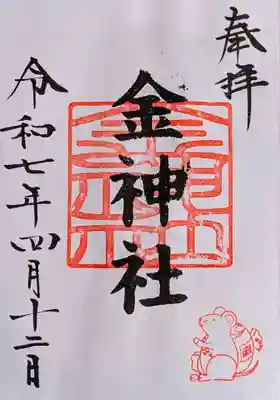 奉拝
金神社
令和七年四月十二日